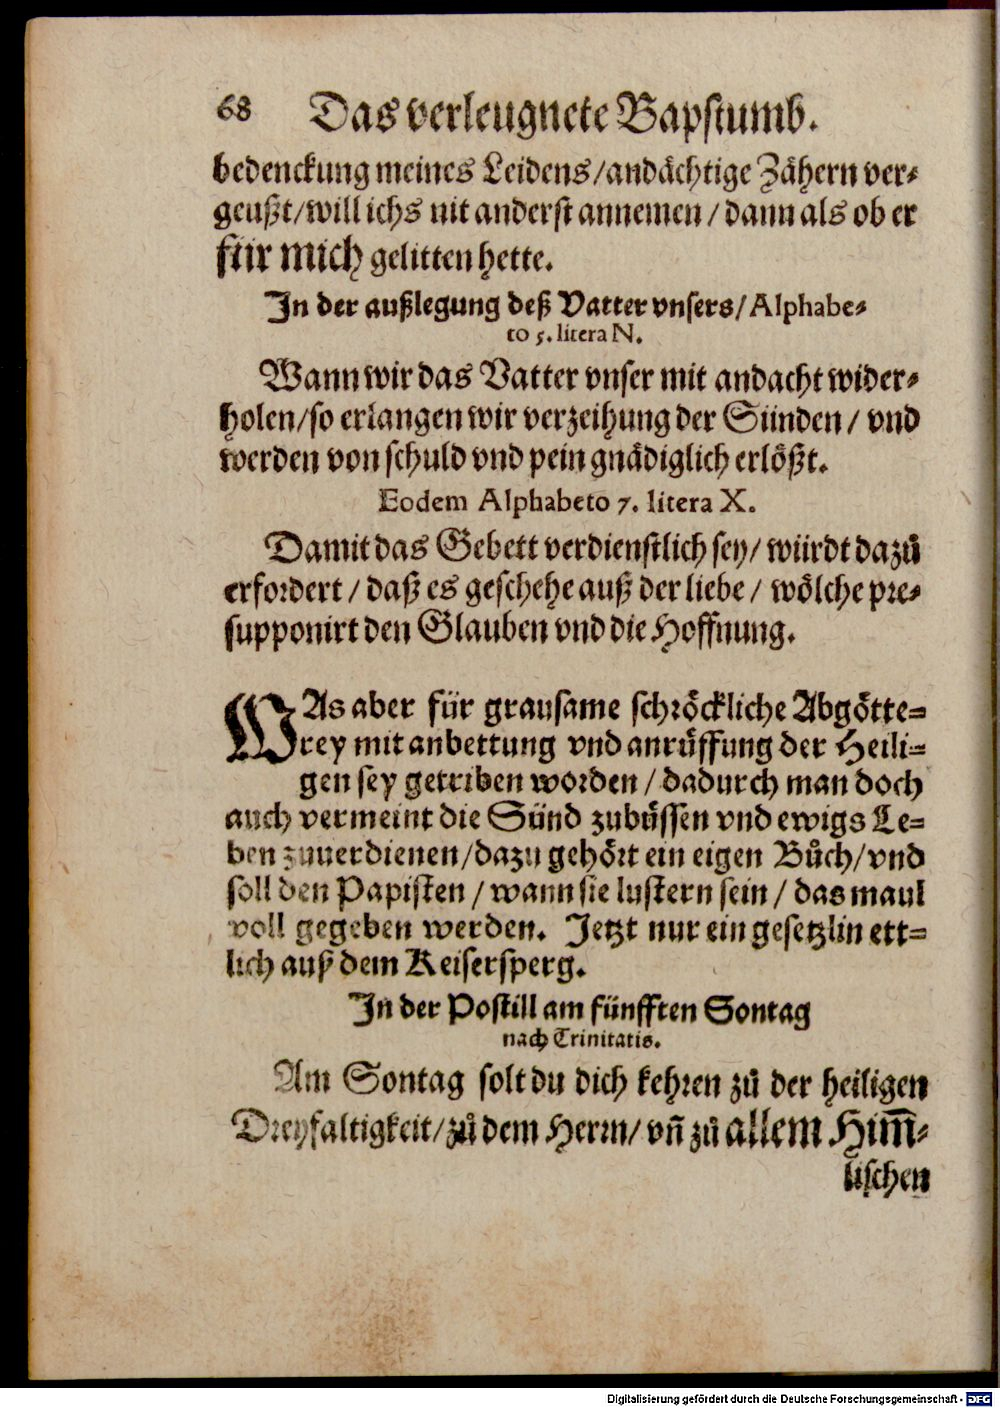 68 Das verleugnete Bapstumb.
bedenckung meines Leidens/andächtige Zähern ver⸗
geußt/will ichs nit anderst annemen/dann als ob er
für mich gelitten hette.
In der außlegung deß Vatter vnsers/Alphabe⸗
to 5. litera N.
Wann wir das Vatter vnser mit andacht wider⸗
holen/so erlangen wir verzeihung der Sünden/ vnd
werden von schuld vnd pein gnädiglich erlößt.
Eodem Alphabeto 7. litera X.
Damit das Gebett verdienstlich sey/ würdt dazů
erfordert/ daß es geschehe auß der liebe/ wölche pre⸗
supponirt den Glauben vnd die Hoffnung.
WAs aber für grausame schröckliche Abgötte⸗
rey mit anbettung vnd anrüffung der Heili⸗
gen sey getriben worden/dadurch man doch
auch vermeint die Sünd zubüssen vnd ewigs Le⸗
ben zuuerdienen/dazu gehört ein eigen Bůch/vnd
soll den Papisten/wann sie lustern sein/das maul
voll gegeben werden. Jetzt nur ein gesetzlin ett⸗
lich auß dem Keisersperg.
In der Postill am fünfften Sontag
nach Trinitatis.
Am Sontag solt du dich kehren zů der heiligen
Dreyfaltigkeit/zů dem Herrn/ vñ zů allem Him̃⸗
lischen
Digitalisierung gefördert durch die Deutsche Forschungsgemeinschaft - DFG